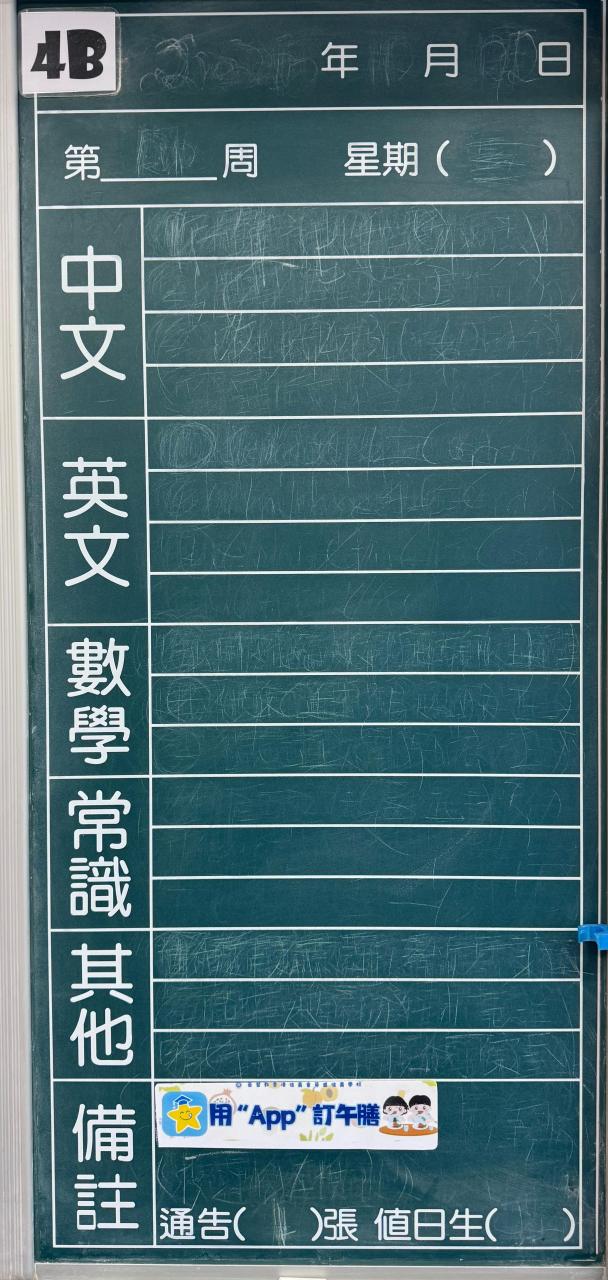 4B
年 月 日
第______周 星期( )
中文
英文
數學
常識
其他
備註
用“App”訂午膳
通告( )張 值日生( )